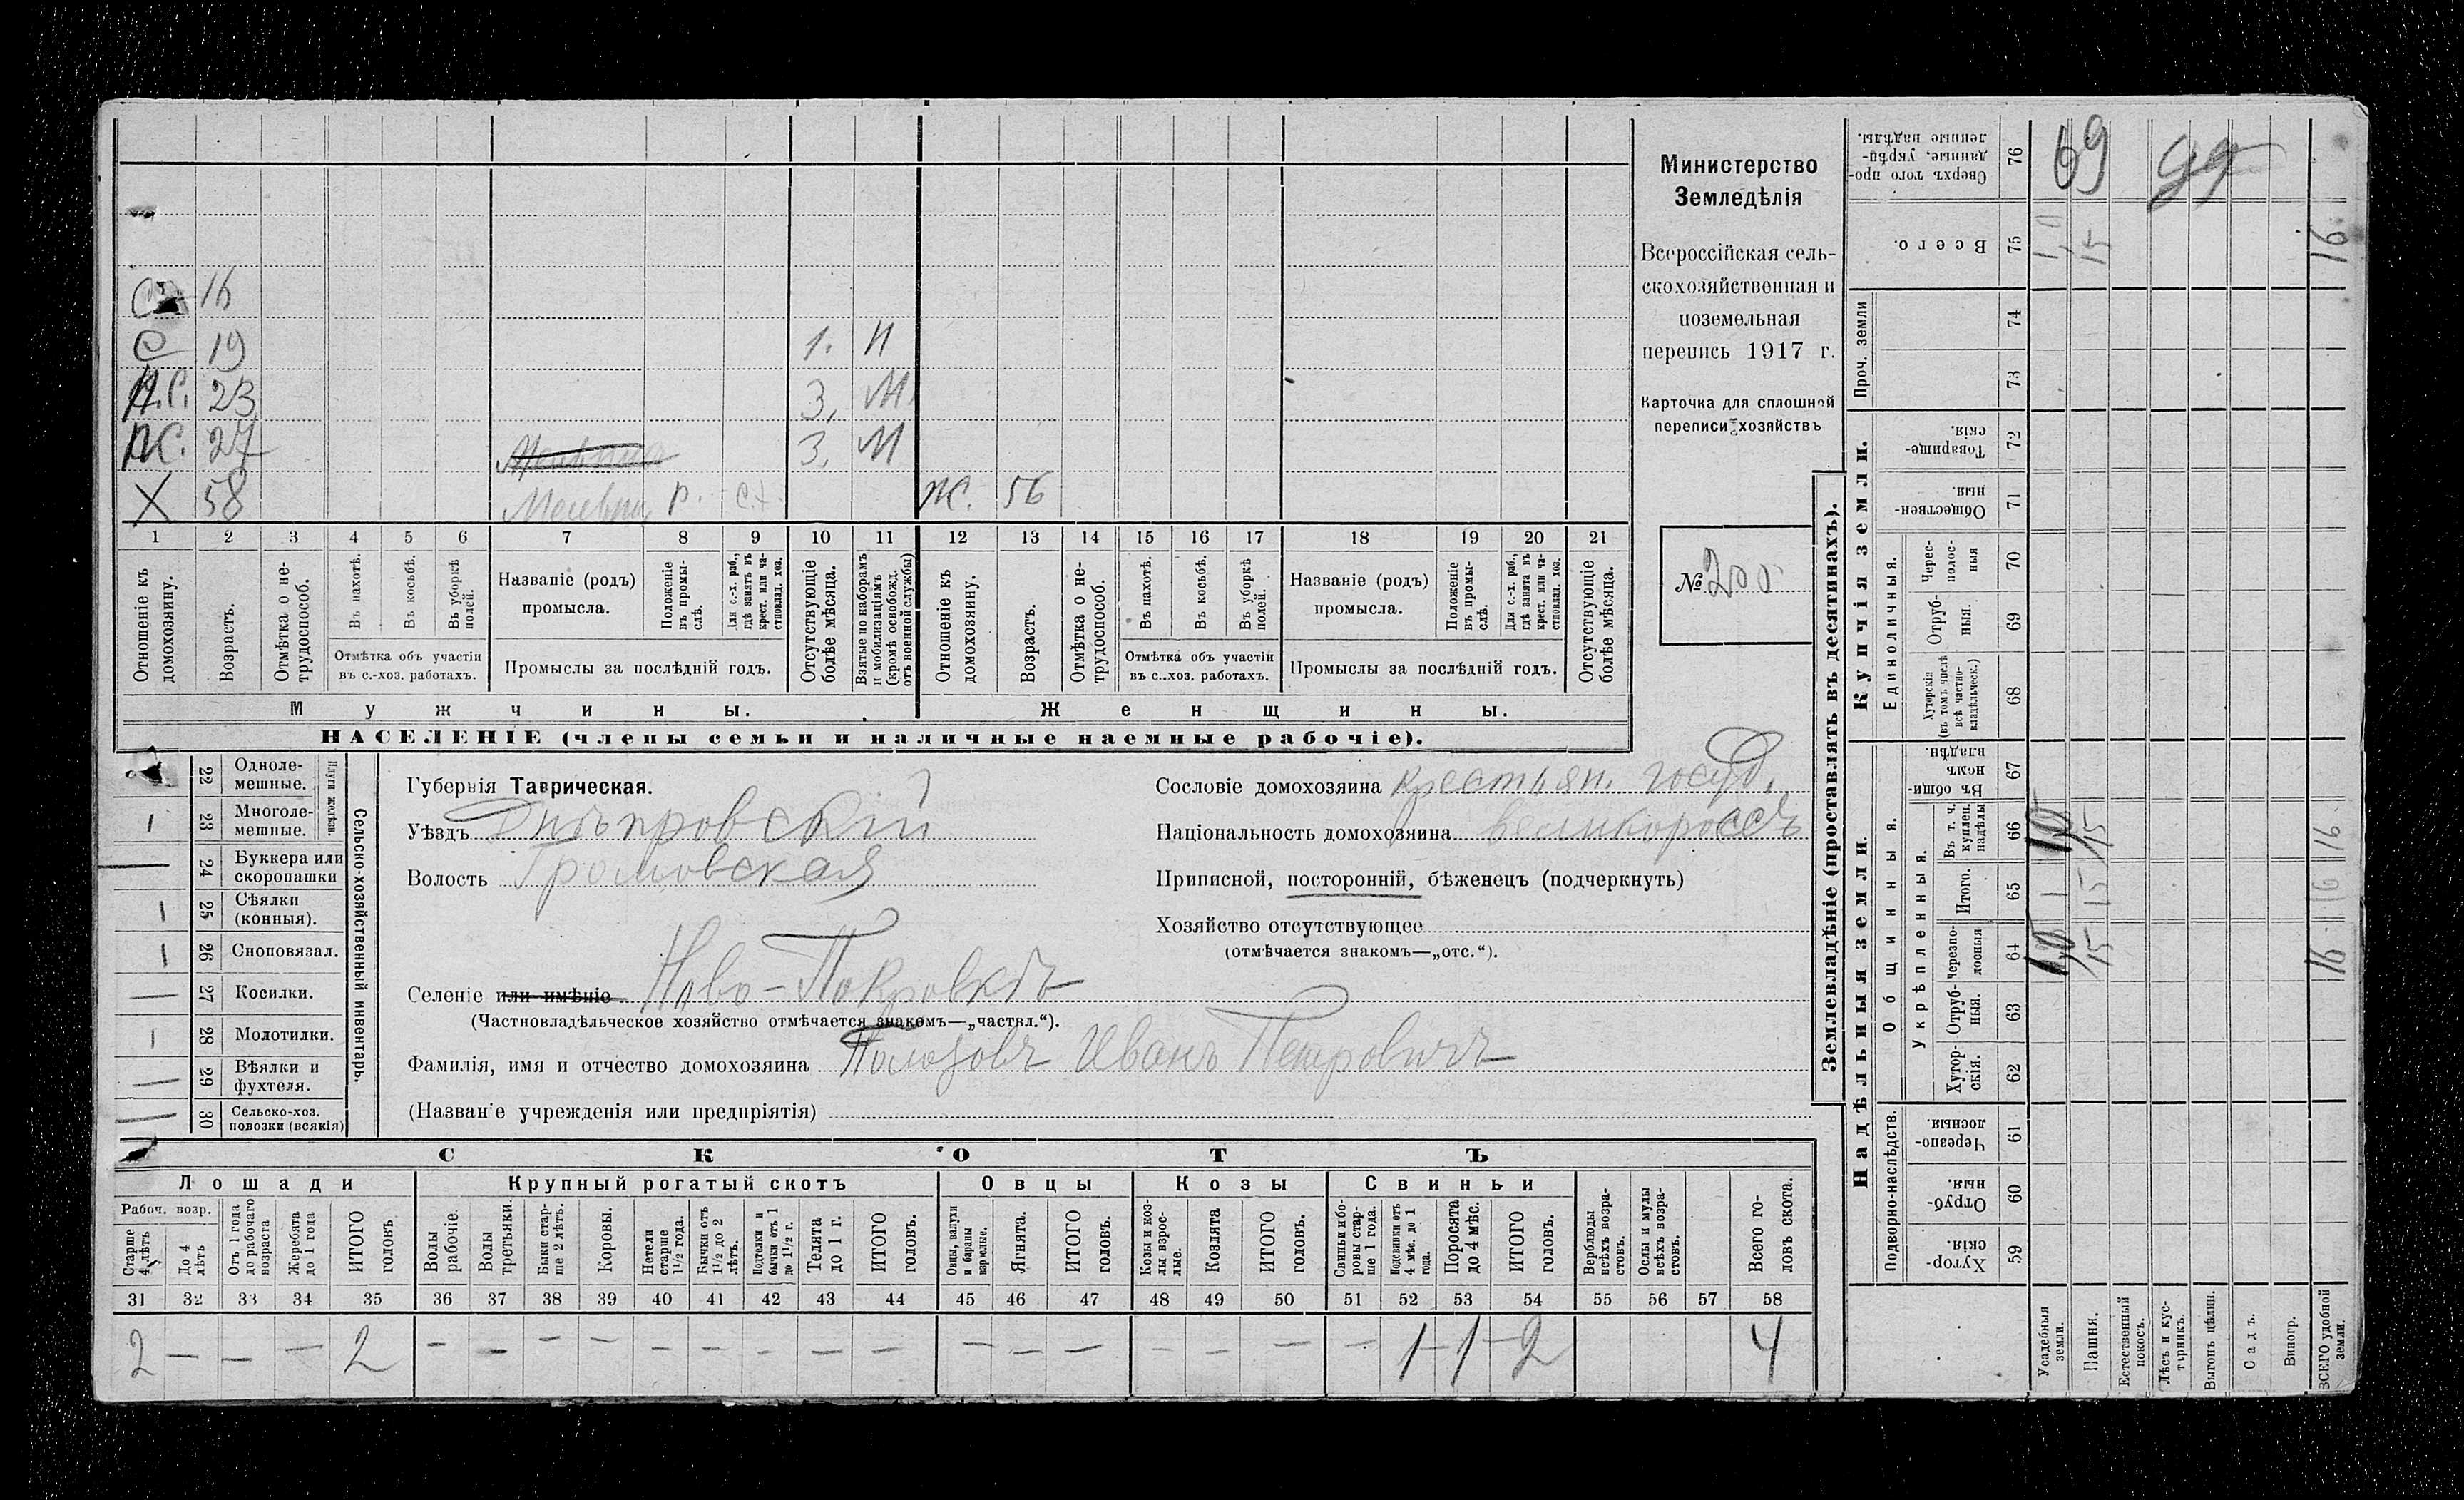 С 16
С 19 1. П
Н.С. 23 3, М
27 3, М
Х 58 р. с.х. Ж. 56
1 2 3 4 5 6 7 8 9 10 11 12 13 14 15 16 17 18 19 20 21
Отношеніе къ домохозяину.
Возрастъ.
Отмѣтка о не-трудоспособ.
Въ пахотѣ.
Въ косьбѣ.
Въ уборкѣ полей.
Отмѣтка объ участіи въ с.-хоз. работахъ.
Названіе (родъ) промысла.
Положеніе въ промы-слѣ.
Для с.-х. раб., гдѣ занятъ въ крест. или ча-стновлад. хоз.
Промыслы за послѣдній годъ.
Отсутствующіе болѣе мѣсяца.
Взятые по наборамъ и мобилизаціямъ (кромѣ освобожд. отъ военной службы)
Отношеніе къ домохозяину.
Возрастъ.
Отмѣтка о не-трудоспособ.
Въ пахотѣ.
Въ косьбѣ.
Въ уборкѣ полей.
Отмѣтка объ участіи въ с.-хоз. работахъ.
Названіе (родъ) промысла.
Положеніе въ промы-слѣ.
Для с.-х. раб., гдѣ занята въ крест. или ча-стновлад. хоз.
Промыслы за послѣдній годъ.
Отсутствующіе болѣе мѣсяца.
Мужчины. Женщины.
НАСЕЛЕНІЕ (члены семьи и наличные наемные рабочіе).
Министерство
Земледѣлія
Всероссійская сель-
скохозяйственная и
поземельная
перепись 1917 г.
Карточка для сплошной
переписи хозяйствъ
№ 200
Сельско-хозяйственный инвентарь.
Плуги желѣзн.
22 Одноле-мешные.
23 Многоле-мешные.
24 Буккера или скоропашки
25 Сѣялки (конныя).
26 Сноповязал.
27 Косилки.
28 Молотилки.
29 Вѣялки и фухтеля.
30 Сельско-хоз. повозки (всякія)
Губернія Таврическая.
Уѣздъ Днѣпровскій
Волость Громовская
Сословіе домохозяина крестьян. госуд.
Національность домохозяина великороссъ
Приписной, посторонній, бѣженецъ (подчеркнуть)
Хозяйство отсутствующее
(отмѣчается знакомъ—„отс.“).
Селеніе или имѣніе Ново-Покровкѣ
(Частновладѣльческое хозяйство отмѣчается знакомъ—„частвл.“).
Фамилія, имя и отчество домохозяина Полозовъ Иванъ Петровичъ
(Названіе учрежденія или предпріятія)
СКОТЪ
Лошади Крупный рогатый скотъ Овцы Козы Свиньи
Рабоч. возр.
Старше 4 лѣтъ
До 4 лѣтъ
Отъ 1 года до рабочаго возраста
Жеребята до 1 года
ИТОГО головъ
Волы рабочіе.
Волы третьяки.
Быки стар-ше 2 лѣтъ.
Коровы.
Нетели старше 1½ года.
Бычки отъ 1½ до 2 лѣтъ.
Подтелки и бычки отъ 1 до 1½ г.
Телята до 1 г.
ИТОГО головъ.
Овцы, валухи и бараны взрослые.
Ягнята.
ИТОГО головъ.
Козы и коз-лы взрос-лые.
Козлята
ИТОГО головъ.
Свиньи и бо-ровы стар-ше 1 года.
Подсвинки отъ 4 мѣс. до 1 года.
Поросята до 4 мѣс.
ИТОГО головъ.
Верблюды всѣхъ возра-стовъ.
Ослы и мулы всѣхъ возра-стовъ.
Всего го-ловъ скота.
31 32 33 34 35 36 37 38 39 40 41 42 43 44 45 46 47 48 49 50 51 52 53 54 55 56 57 58
2 — — — 2 — — — — — — — — — — — — — — — — 1 1 2 4
Землевладѣніе (проставлять въ десятинахъ).
Купчія земли.
Надѣльныя земли.
Сверхъ того про-данные, укрѣп-ленные надѣлы. 76 69
Всего. 75 1 15 16
Проч. земли 74 73
Товарище-скія. 72
Обществен-ныя. 71
Единоличныя.
Черес-полос-ныя 70
Отруб-ныя. 69
Хуторскія (въ томъ числѣ всѣ частно-владѣльческ.) 68
Общинныя.
Въ общи-номъ владѣн. 67
Укрѣпленныя.
Въ т. ч. куплен. надѣлы 66 15 16
Итого. 65 1 15 16
Черезпо-лосныя 64 15 16
Отруб-ныя. 63
Хутор-скія. 62
Подворно-наслѣдств.
Черезпо-лосныя. 61
Отруб-ныя. 60
Хутор-скія. 59
Усадебныя земли.
Пашня.
Естественный покосъ.
Лѣсъ и кус-тарникъ.
Выгонъ цѣлин.
Садъ.
Виногр.
ВСЕГО удобной земли.